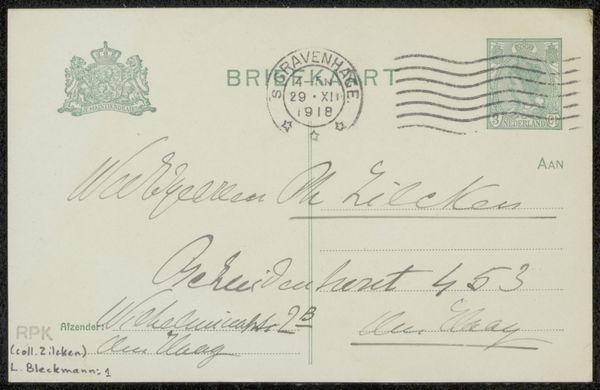 JE MAINTIENDRAI
BRIEFKAART
'S GRAVENHAGE.
29 · XII
1918
3 ct
NEDERLAND
AAN
WelEdelHeer Ph Zilcken
Bezuidenhout 453
Den Haag
Afzender: Wilhelminastr 2B
Den Haag
RPK
(coll. Zilcken)
L. Bleckmann: 1